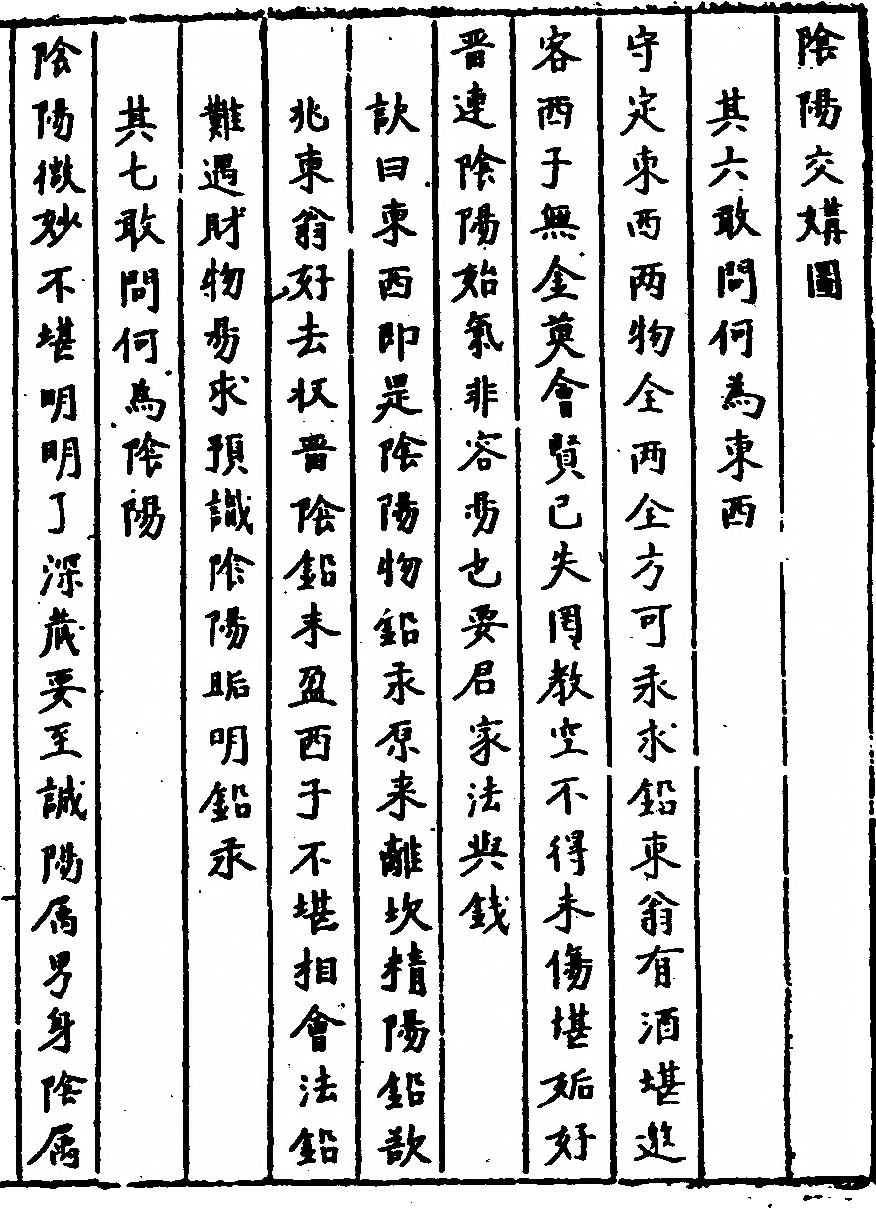 陰陽交媾圖
其六敢問何為東西
守定東西两物全两全方可汞求鉛東翁有酒堪進
客西子無金莫會賢已失罔教空不得未傷堪姤好
晋連陰陽始氣非容易也要君家法與錢
訣曰東西即是陰陽物鉛汞原来離坎精陽鉛歆
兆東翁好去狀晋陰鉛未盈西子不堪相會法鉛
難遇財物易求預識陰陽姤明鉛汞
其七敢問何為陰陽
陰陽微妙不堪明明了深藏要至誠陽属男身陰属